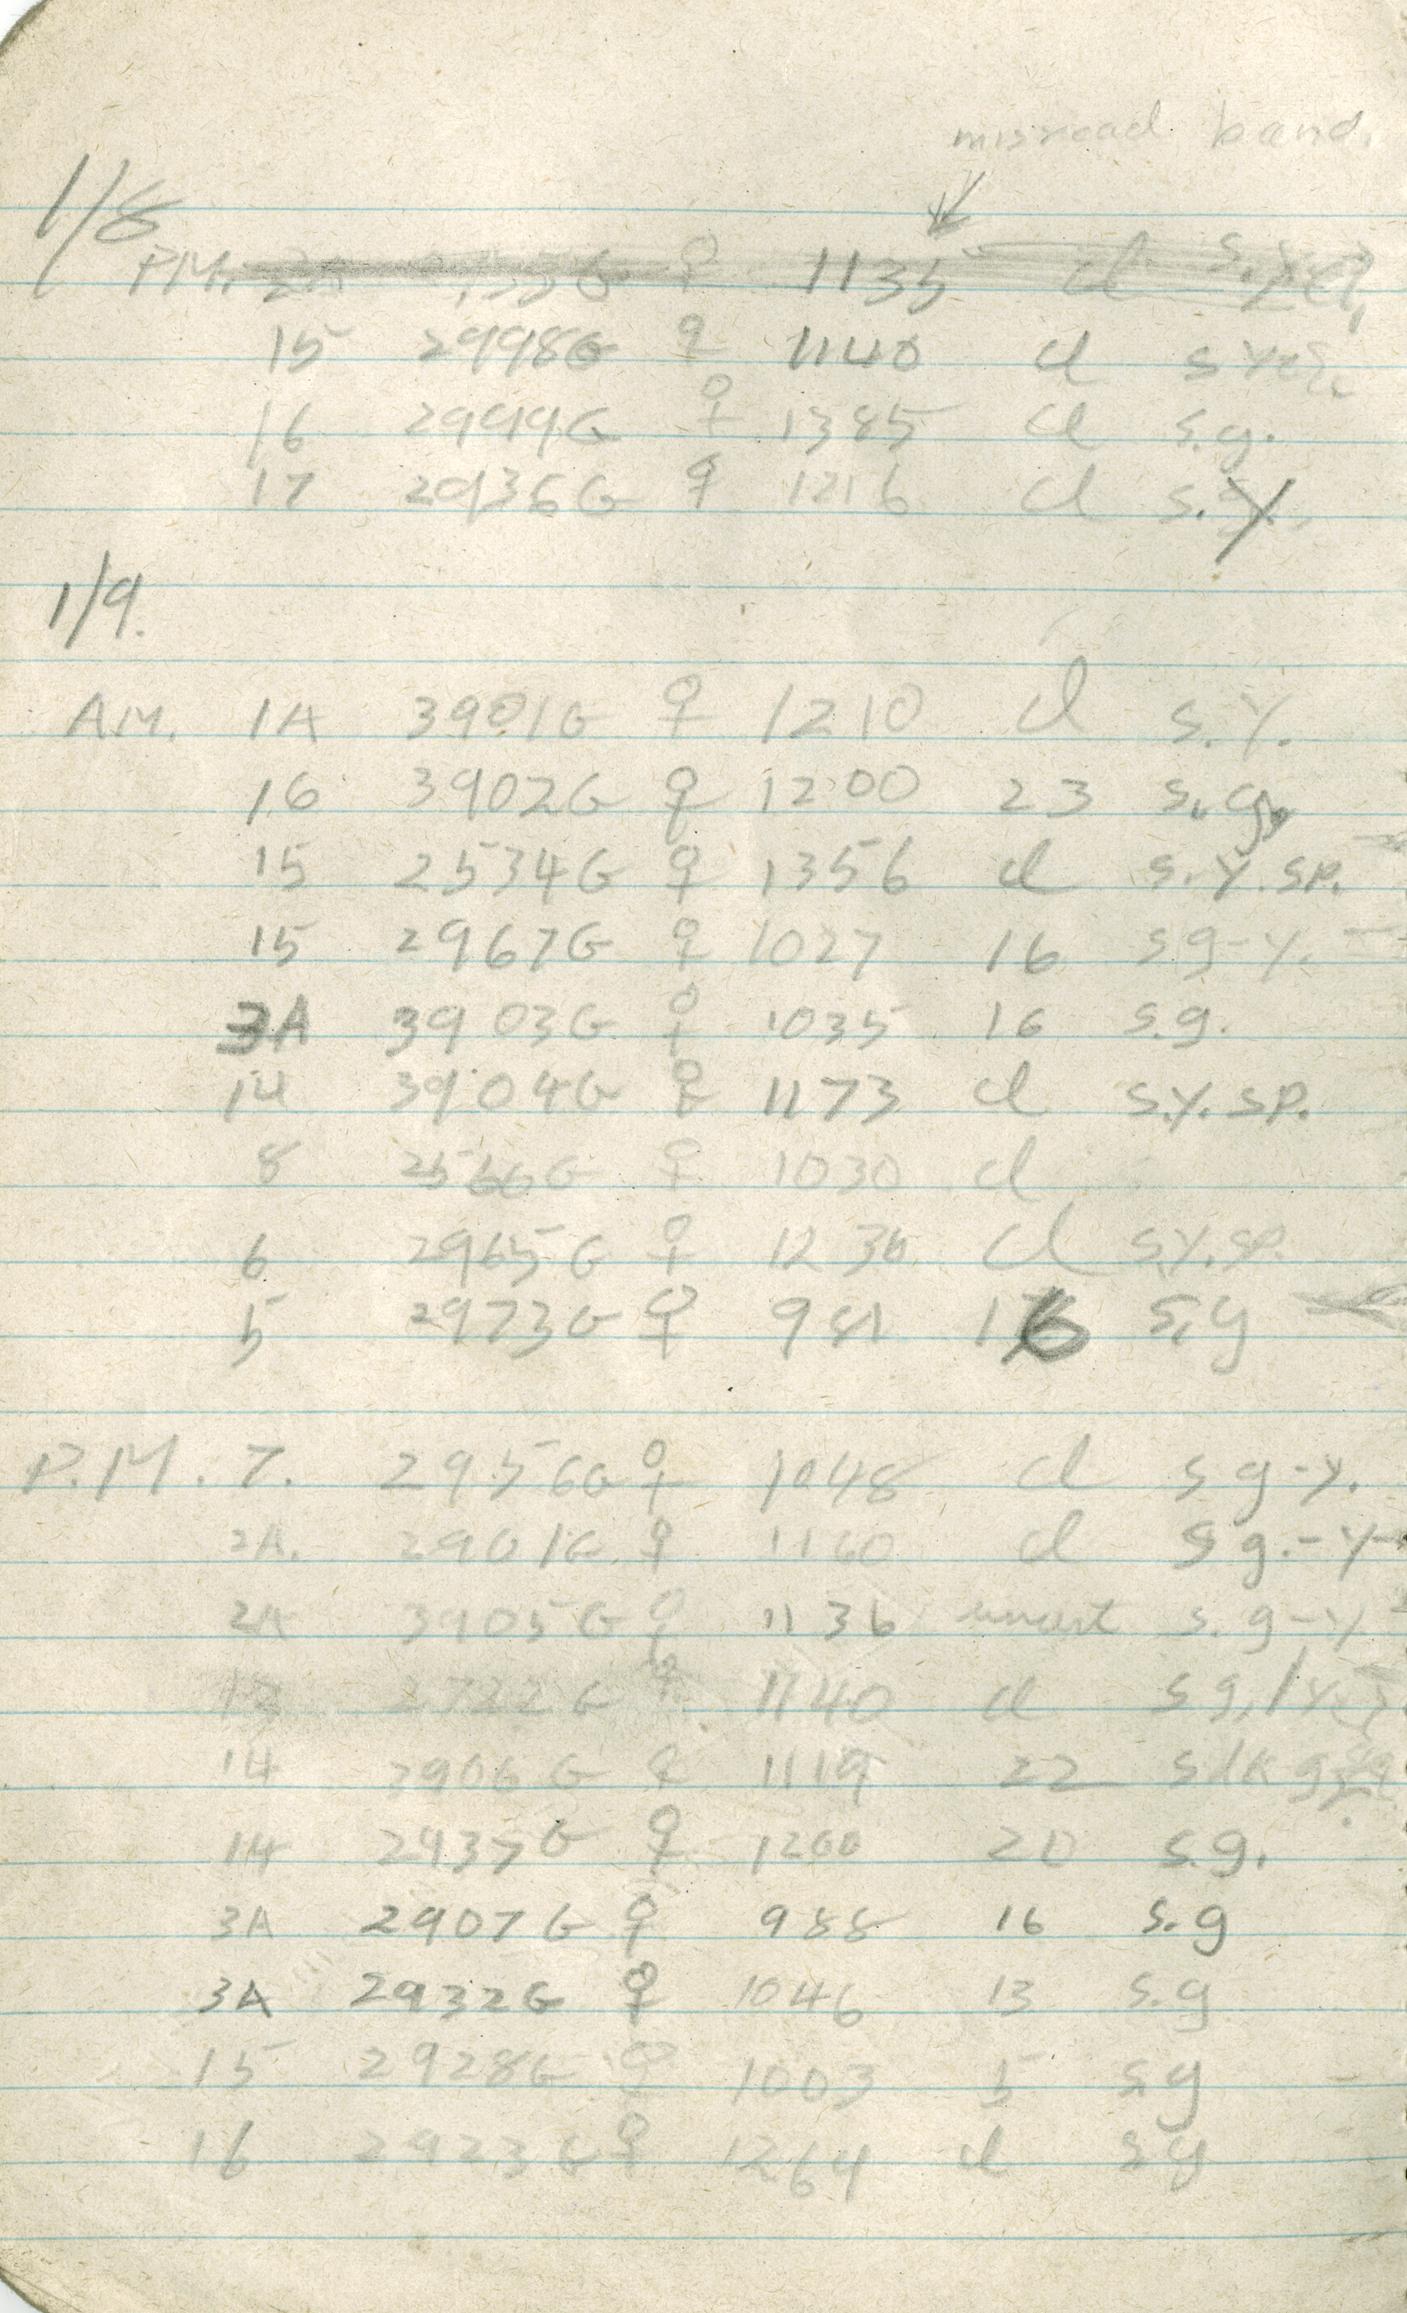 misread band.
1/8
P.M. 2A G ♀ 1135 cl s. yel,
15 2998G ♀ 1140 cl s yel.
16 2999G ♀ 1385 cl s.g.
17 2936G ♀ 1216 cl s.y.
1/9.
A.M. 1A 3901G ♀ 1210 cl s.y.
16 3902G ♀ 1200 23 s.g.
15 2534G ♀ 1356 cl s.y.sp.
15 2967G ♀ 1027 16 s g-y.
3A 3903G ♀ 1035 16 s.g.
14 3904G ♀ 1173 cl s.y.sp.
8 2566G ♀ 1030 cl
6 2965G ♀ 1236 cl s.y.sp.
5 2973G ♀ 981 16 s.g
P.M. 7. 2956G ♀ 1048 cl s g-y.
2A. 2901G ♀ 1160 cl s g.-y-
2A 3905G ♀ 1136 s. g-y
2722G ♀ 1140 cl s g,
14 3906G ♀ 1119 22 s dk g
14 2937G ♀ 1200 20 s.g.
3A 2907G ♀ 988 16 s.g
3A 2932G ♀ 1046 13 s.g
15 2928G ♀ 1003 5 s.g
16 2923G ♀ 1264 cl s g